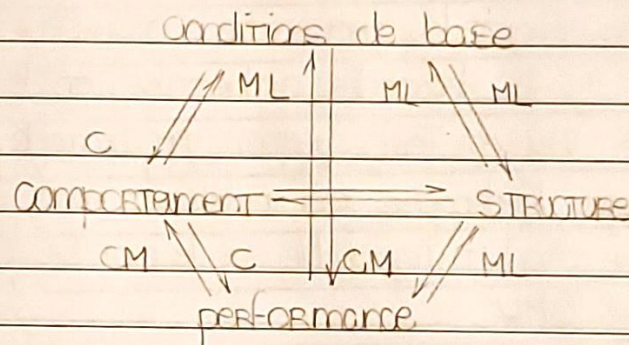 conditions de base
ML ML ML
C
comportement STRUCTURE
CM C CM ML
performance